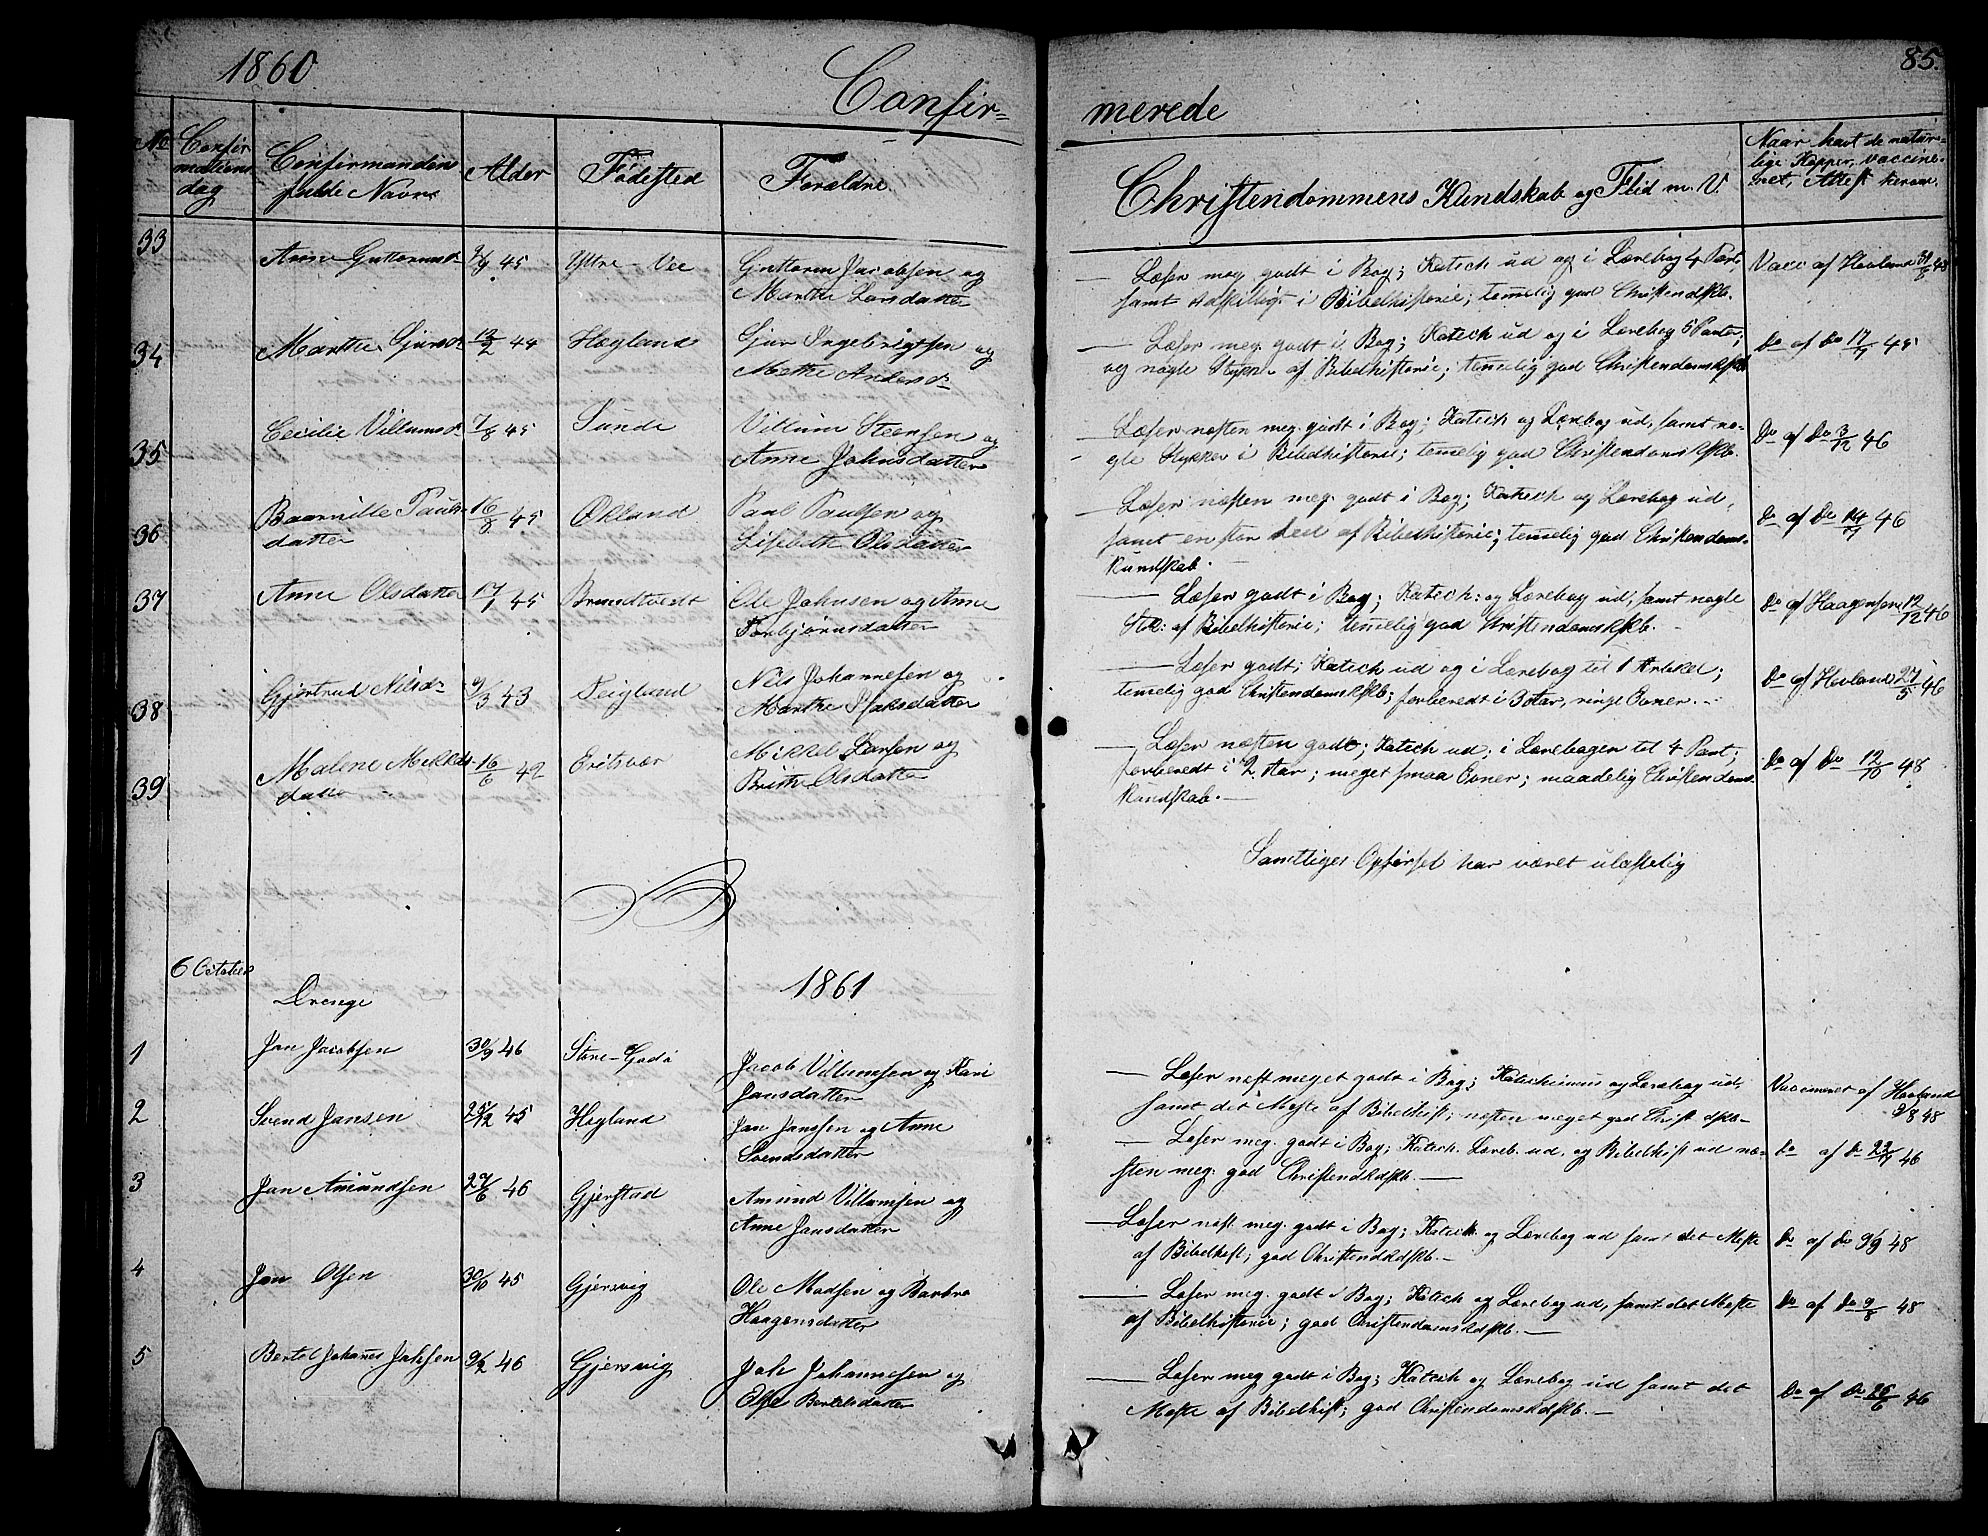 1860
Confir=
merede
85.
No
Confir
mations
dag
Confirmandens
fulde Navne
Alder
Fødested
Forældre
Christendommens Kundskab og Flid m. V.
Naar havt de natur-
lige Kopper, vaccine-
ret, Attest herom.
33 Anne Guttormsd 45 Yttre-Vee Guttorm Jacobsen og
Marthe Larsdatter
— Læser meg. godt i Bog; Katech ud og i Lærebog 4 Part,
samt adskilligt i Bibelhistorie; temelig god Christendskb.
Vacc af Hovland
34 Marthe Gjursd 13/2 44 Høgland Gjur Ingebrigtsen og
Mette Andersd
— Læser meg. godt i Bog; Katech ud og i Lærebog 5 Parter,
og nogle Stykker af Bibelhistorie; temelig god Christendomskskb
do af do 17/7 45
35 Cecilie Villumsd 7/8 45 Sunde Villum Steensen og
Anne Johnsdatter
— Læser næsten meg. godt i Bog; Katech og Lærebog ud, samt no-
gle Stykker i Bibelhistorie; temelig god Christendomskskb.
do af do 3/12 46
36 Baarnille Pauls-
datter 16/8 45 Økland Paul Paulsen og
Lisebeth Olsdatter
— Læser næsten meg. godt i Bog; Katech og Lærebog ud,
samt en stor Deel af Bibelhistorie; temelig god Christendoms-
kundskab.
do af do 14/7 46
37 Anne Olsdatter 17/1 45 Brundtvedt Ole Johnsen og Anne
Torbjørnsdatter
— Læser godt i Bog; Katech: og Lærebog ud, samt nogle
Stk: af Bibelhistorie; temelig god Christendomskskb.
do af Haagensen 12/12 46
38 Gjertrud Nilsd 9/3 43 Teigland Nils Johannesen og
Marthe Isaksdatter
— Læser godt; Katech ud og i Lærebog til 1 Artikel;
temelig god Christendomskskb; forberedt i 3 Aar, ringe Evner.
do af Hovland 27/5 46
39 Malene Mikkels
datter 16/6 42 Eritsvær Mikkel Larsen og
Britha Olsdatter
— Læser næsten godt; Katech ud; i Lærebogen til 4 Part;
forberedt i 2 Aar; meget smaa Evner; maadelig Christendoms-
kundskab.
do af do 12/10 48
Samtliges Opførsel har været ulastelig
6 October
Drenge
1861
1 Jan Jacobsen 30/9 46 Store-Godø Jacob Villumsen og Kari
Jansdatter
— Læser næst meget godt i Bog; Katechismus og Lærebog ud,
samt det Meste af Bibelhist; næsten meget god Christ dskb
Vaccineret af Hovland
9/8 48
2 Svend Jansen 25/12 45 Høgland Jan Jansen og Anne
Svendsdatter
— Læser meg. godt i Bog; Katech. Læreb. ud, og Bibelhist ud næ-
sten meg. god Christendkdskb.
do af do 22/7 46
3 Jan Amundsen 27/6 46 Gjerstad Amund Villumsen og
Anne Jansdatter
— Læser næst. meg. godt i Bog; Katech. og Lærebog ud samt det Meste
af Bibelhist; god Christendkdskb.
do af do 9/9 48
4 Jan Olsen 30/10 45 Gjersvig Ole Madsen og Barbro
Haagensdatter
— Læser meg. godt i Bog; Katech og Lærebog ud, samt det Meste
af Bibelhistorie; god Christendomskdskb.
do af do 9/8 48
5 Bertel Johanes Johsen 9/2 46 Gjersvig Joh. Johannesen og
Else Bertelsdatter
— Læser meg godt i Bog; Katech og Lærebog ud samt det
Meste af Bibelhist; god Christendomskdskb.
do af do 26/6 46